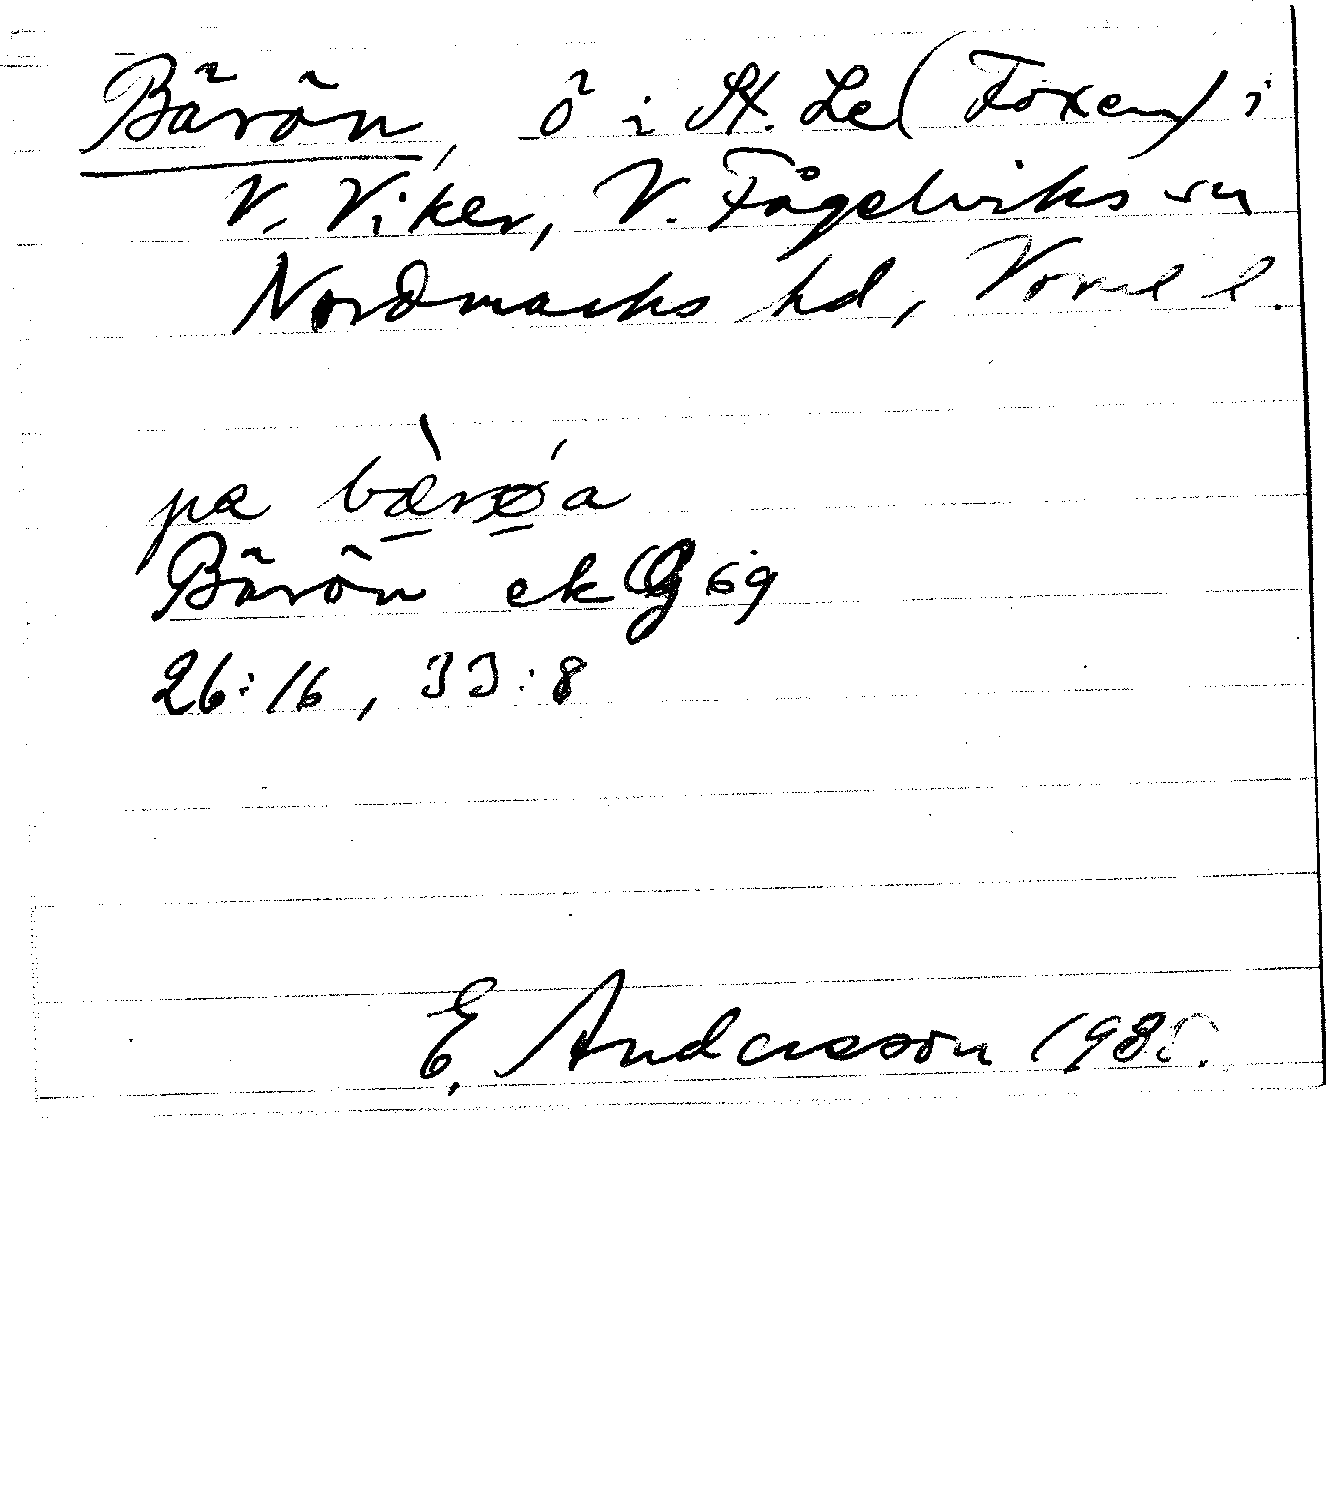 Bärön, ö i St. Le (Foxen) i
V. Viker, V. Fågelviks sn
Nordmarks hd, Värml l.
pa bæ̀rø̀́a
Bärön ek 69
26:16, 33:8
E. Andersson